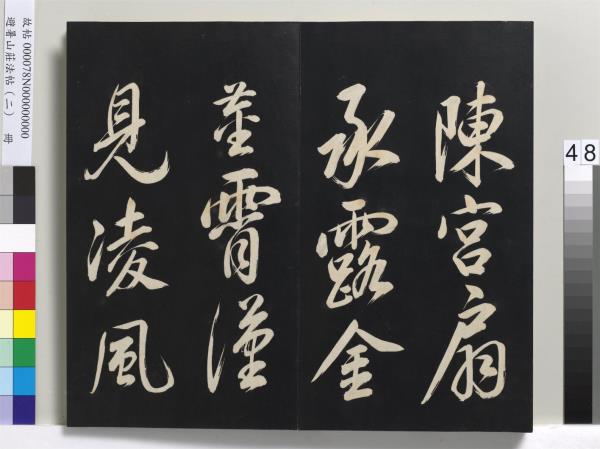 陳宮扇
承露金
莖霄漢
見凌風
故帖 000078N000000000
避暑山莊法帖(二) 冊
48